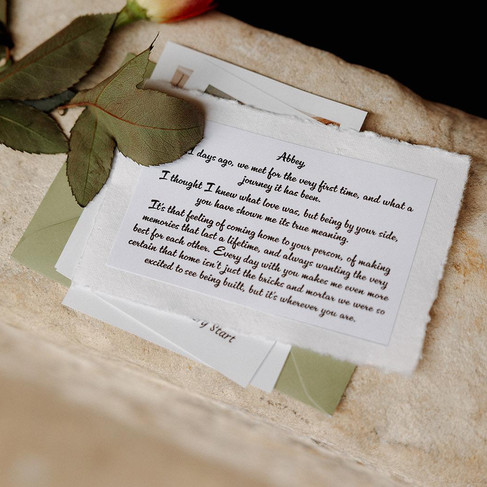 Abbey
1 days ago, we met for the very first time, and what a
journey it has been.
I thought I knew what love was, but being by your side,
you have shown me its true meaning.
It's that feeling of coming home to your person, of making
memories that last a lifetime, and always wanting the very
best for each other. Every day with you makes me even more
certain that home isn't just the bricks and mortar we were so
excited to see being built, but it's wherever you are.
Start